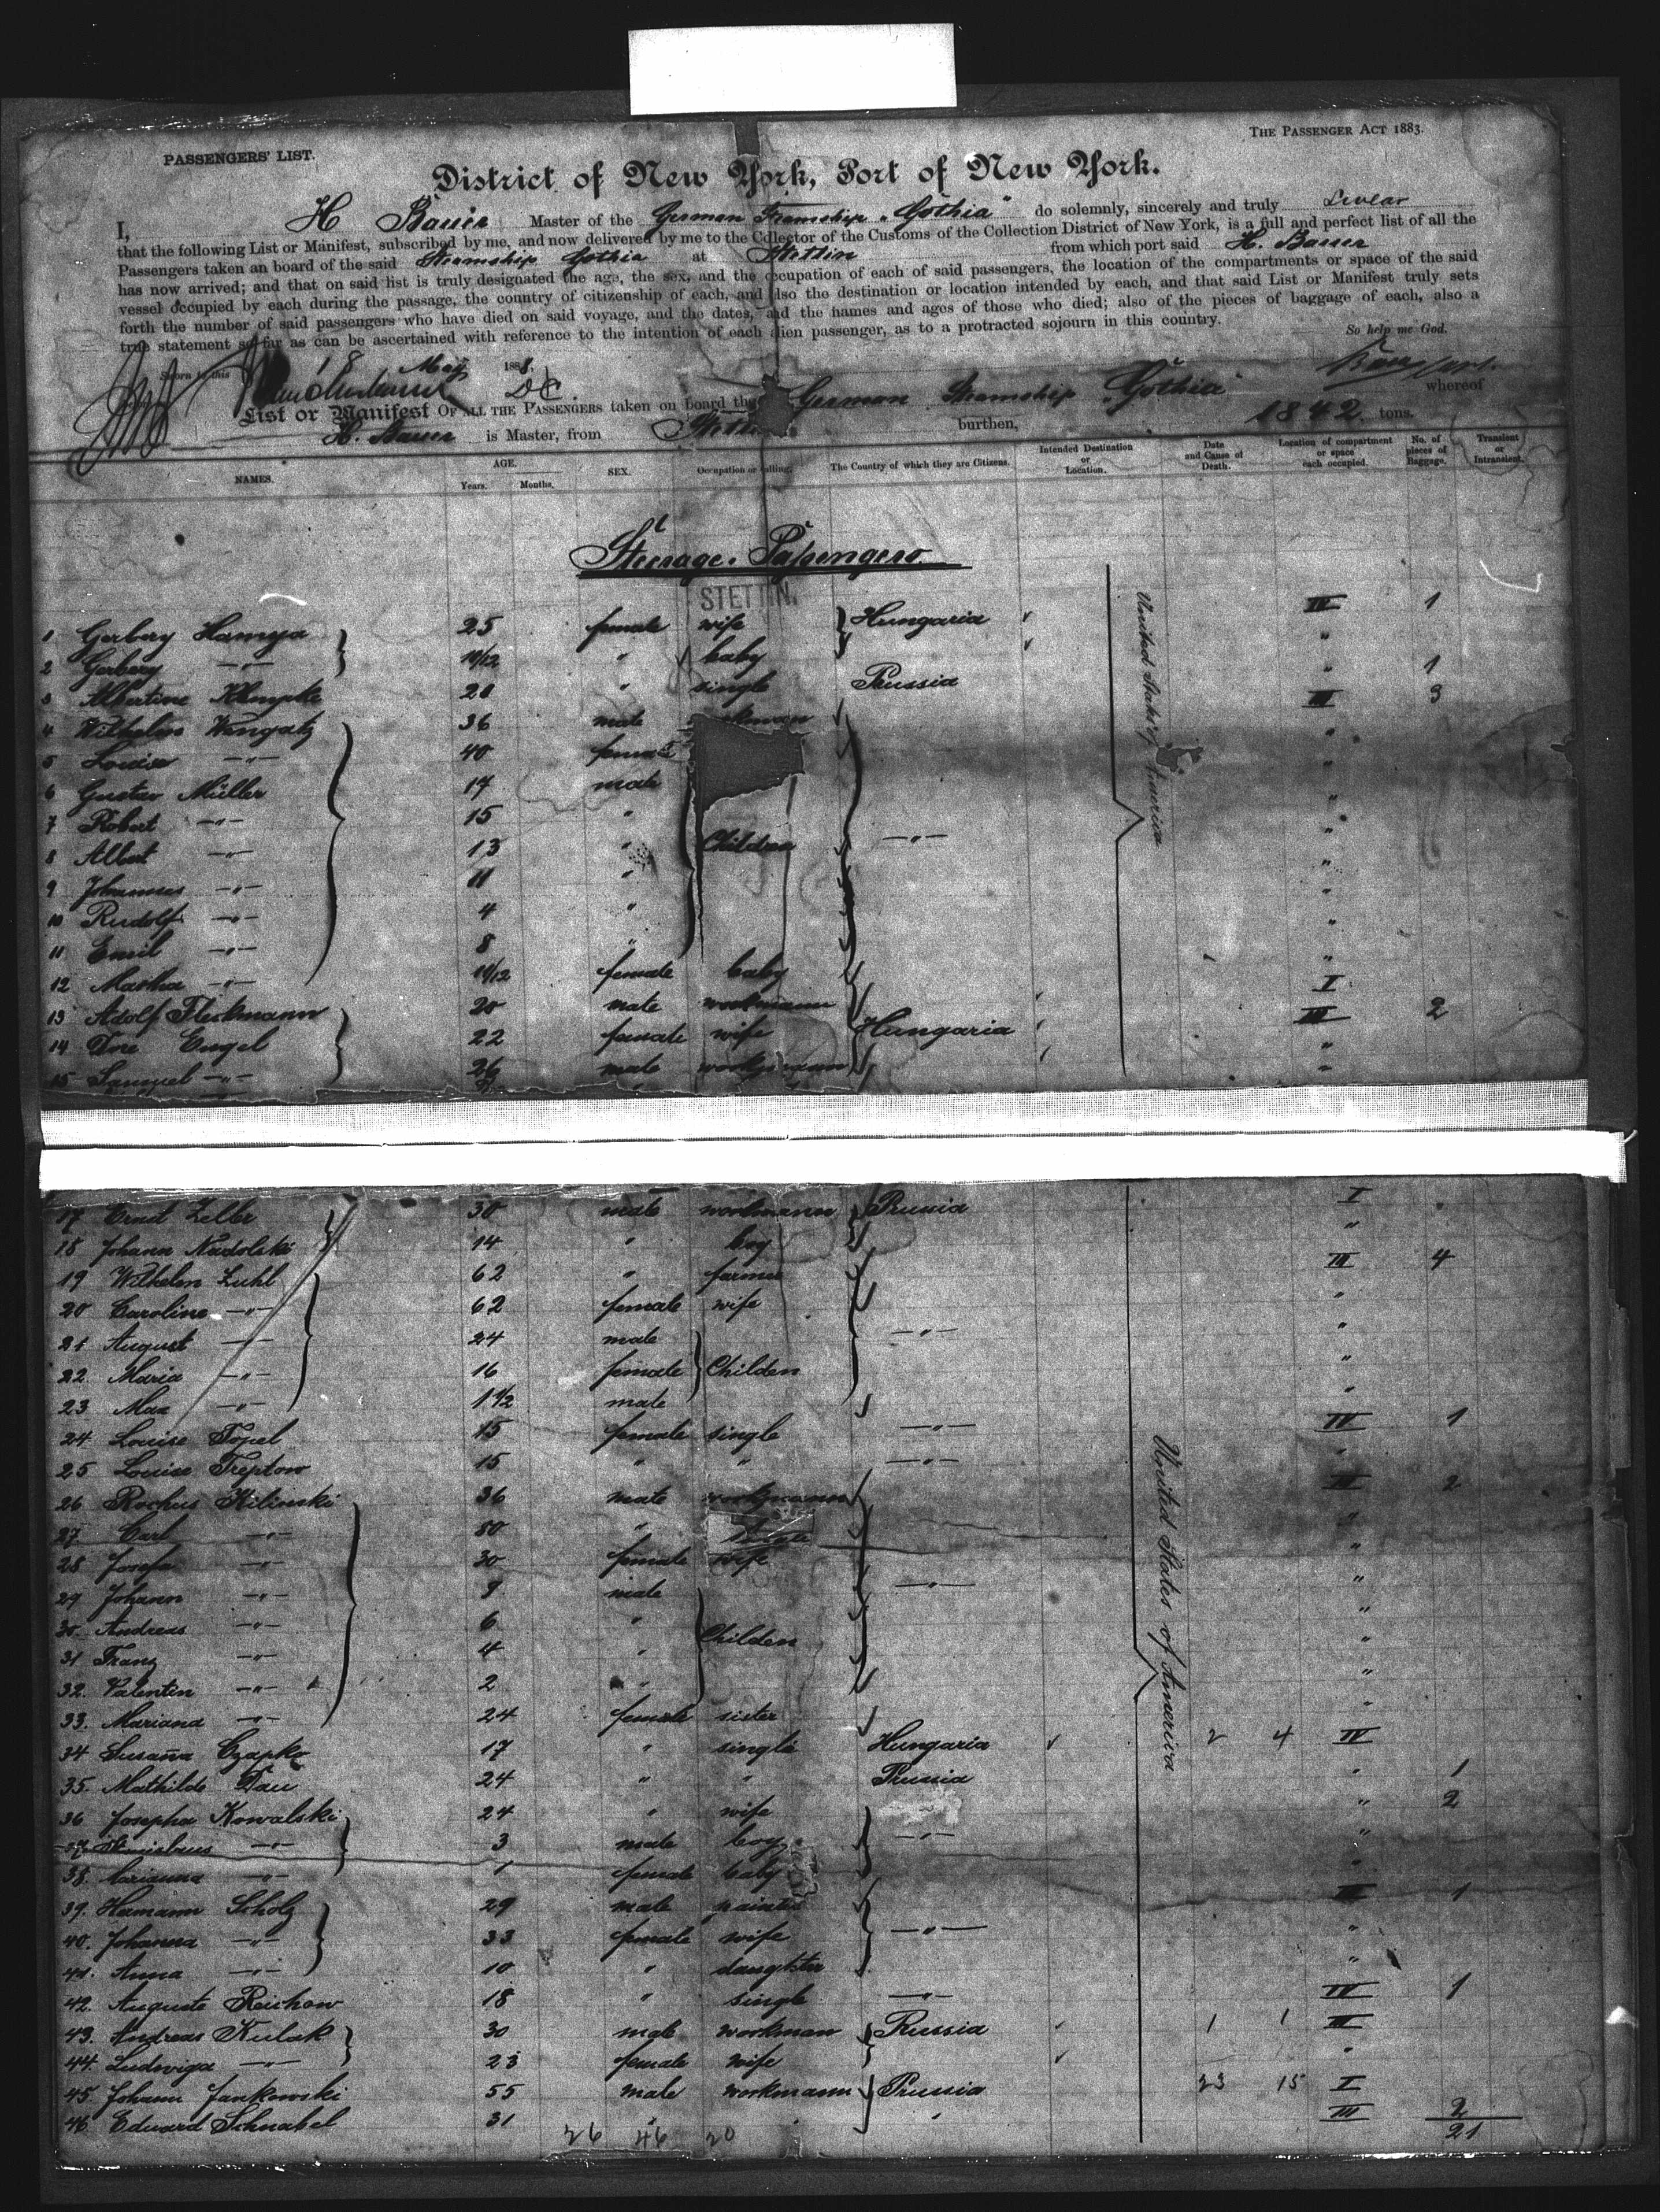 THE PASSENGER ACT 1883.
PASSENGERS' LIST.
District of New York, Port of New York.
I, H Bauer Master of the German Steamship "Gothia" do solemnly, sincerely and truly swear
that the following List or Manifest, subscribed by me, and now delivered by me to the Collector of the Customs of the Collection District of New York, is a full and perfect list of all the
Passengers taken an board of the said Steamship Gothia at Stettin from which port said H. Bauer
has now arrived; and that on said list is truly designated the age, the sex, and the occupation of each of said passengers, the location of the compartments or space of the said
vessel occupied by each during the passage, the country of citizenship of each, and also the destination or location intended by each, and that said List or Manifest truly sets
forth the number of said passengers who have died on said voyage, and the dates, and the names and ages of those who died; also of the pieces of baggage of each, also a
true statement so far as can be ascertained with reference to the intention of each alien passenger, as to a protracted sojourn in this country.
So help me God.
Sworn to this 18 May 188
List or Manifest OF ALL THE PASSENGERS taken on board the German Steamship "Gothia" whereof
H. Bauer is Master, from Stettin burthen, 1842 tons.
NAMES. AGE. Years. Months. SEX. Occupation or calling. The Country of which they are Citizens. Intended Destination or Location. Date and Cause of Death. Location of compartment or space each occupied. No. of pieces of Baggage. Transient or Intransient.
Steerage-Passengers
STETTIN.
United States of America
1 Gerbery Hamya 25 female wife Hungaria IV 1
2 Gerbery -"- 10/12 " baby "
3 Albertine Klempke 20 " single Prussia " 1
4 Wilhelm Wengatz 36 male III 3
5 Louise -"- 40 female "
6 Gustav Müller 17 male "
7 Robert -"- 15 " "
8 Albert -"- 13 " Children -"- "
9 Johannes -"- 11 " "
10 Rudolf -"- 4 " "
11 Emil -"- 8 " "
12 Martha -"- 10/12 female baby "
13 Adolf Fleckmann 20 male workmann I
14 Engel 22 female wife Hungaria III 2
15 Samuel -"- 26 male workmann "
17 Ernst Zeller 30 male workmann Prussia I
18 Johann Nadolski 14 " boy "
19 Wilhelm Luhl 62 " farmer III 4
20 Caroline -"- 62 female wife "
21 August -"- 24 male -"- "
22. Maria -"- 16 female Childen "
23 Max -"- 1 1/2 male "
24 Louise Topel 15 female single -"- IV 1
25 Louise Treptow 15 " " -"- "
26 Rochus Kilinski 36 male workmann III 2
27 Carl -"- 50 " "
28 Josefa -"- 30 female wife "
29 Johann -"- 9 male -"- "
30 Andreas -"- 6 " Childen "
31 Franz -"- 4 " "
32. Valentin -"- 2 " "
33. Mariana -"- 24 female sister "
34 Susana Czapko 17 " single Hungaria 2 4 IV
35. Mathilde Dau 24 " " Prussia " 1
36 Josepha Kowalski 24 " wife " 2
37 Stanislaus -"- 3 male boy -"- "
38. Marianna -"- 1 female baby "
39. Hamann Scholz 29 male painter III 1
40. Johanna -"- 33 female wife -"- "
41. Anna -"- 10 " daughter "
42. Auguste Reichow 18 " single -"- IV 1
43. Andreas Kulak 30 male workman Russia 1 1 III
44. Ludwiga -"- 23 female wife "
45. Johann Jankowski 55 male workmann Prussia 23 15 I
46 Eduard Schnabel 31 " " " III 2
26 46 20 21
United States of America